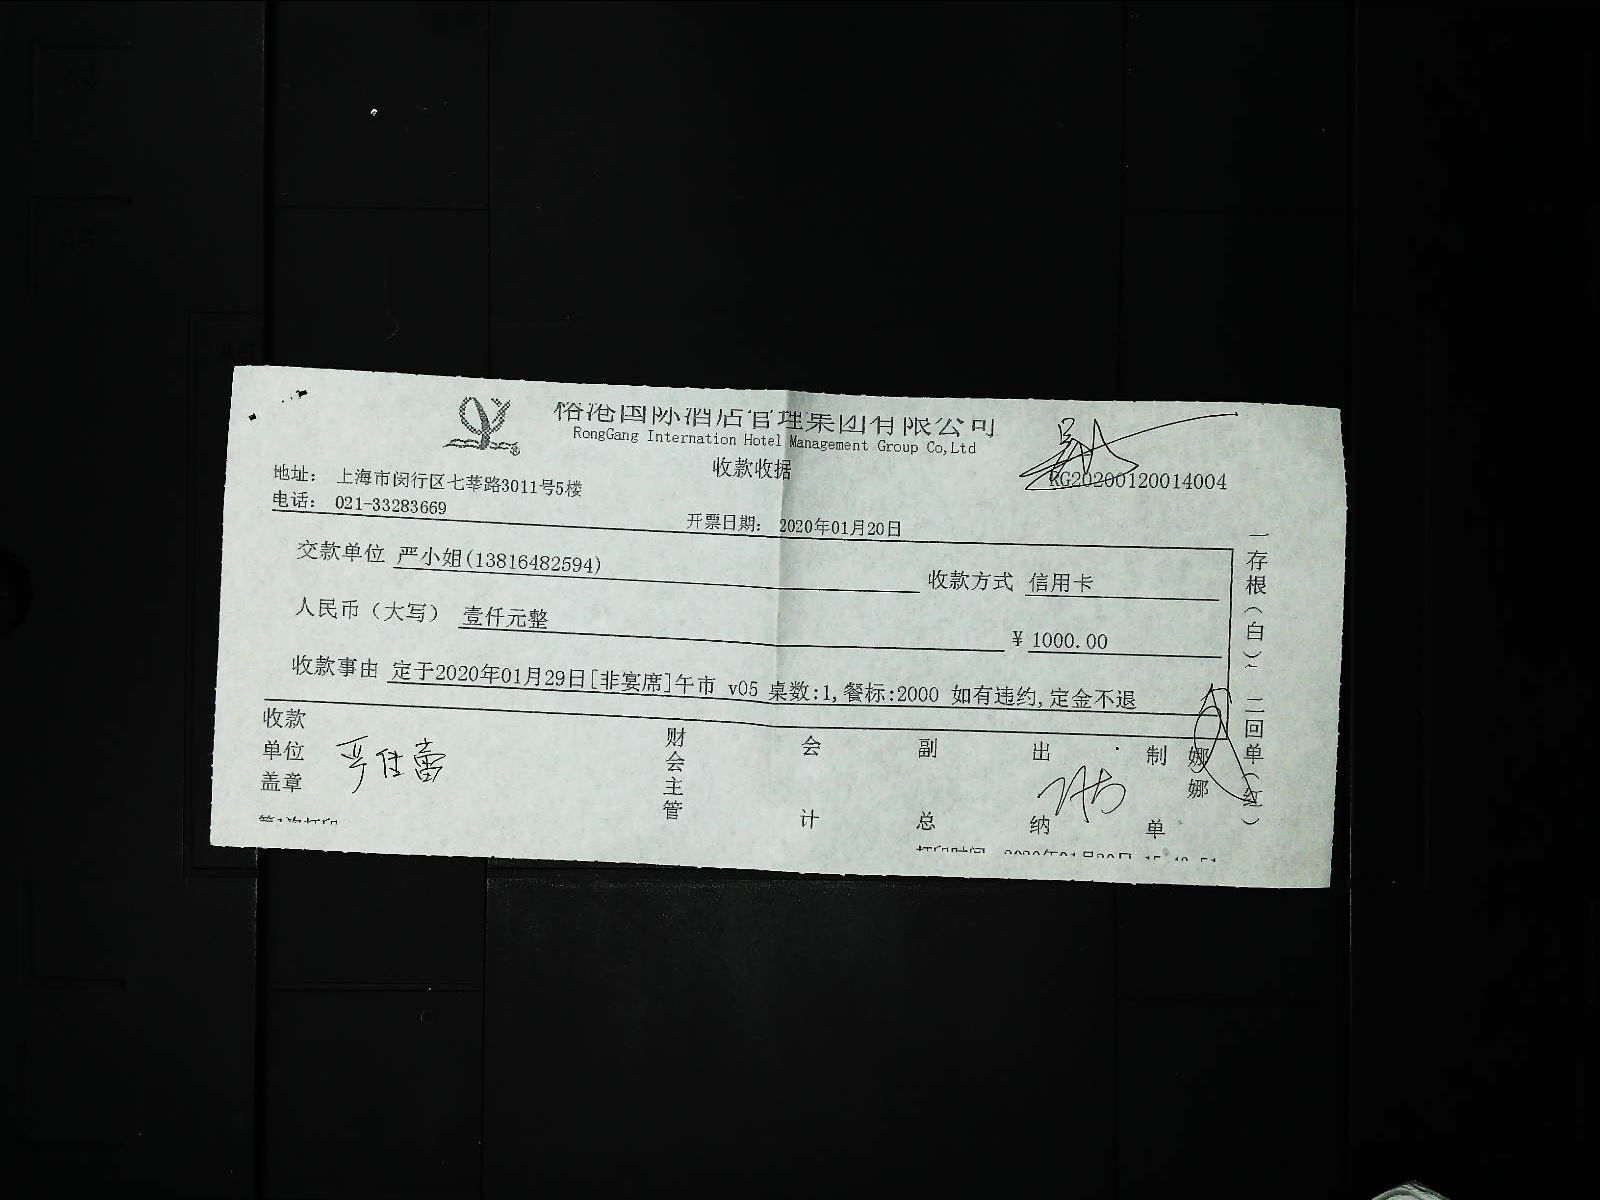 榕港国际酒店管理集团有限公司
RongGang Internation Hotel Management Group Co,Ltd
收款收据
RG20200120014004
地址: 上海市闵行区七莘路3011号5楼
电话: 021-33283669
开票日期: 2020年01月20日
交款单位 严小姐(13816482594) 收款方式 信用卡
人民币(大写) 壹仟元整 ¥ 1000.00
收款事由 定于2020年01月29日[非宴席]午市 v05 桌数:1,餐标:2000 如有违约,定金不退
收款单位盖章 严佳蕾 财会主管 会计 副总 出纳 制单 娜娜
一存根(白) 二回单(红)
第1次打印
打印时间